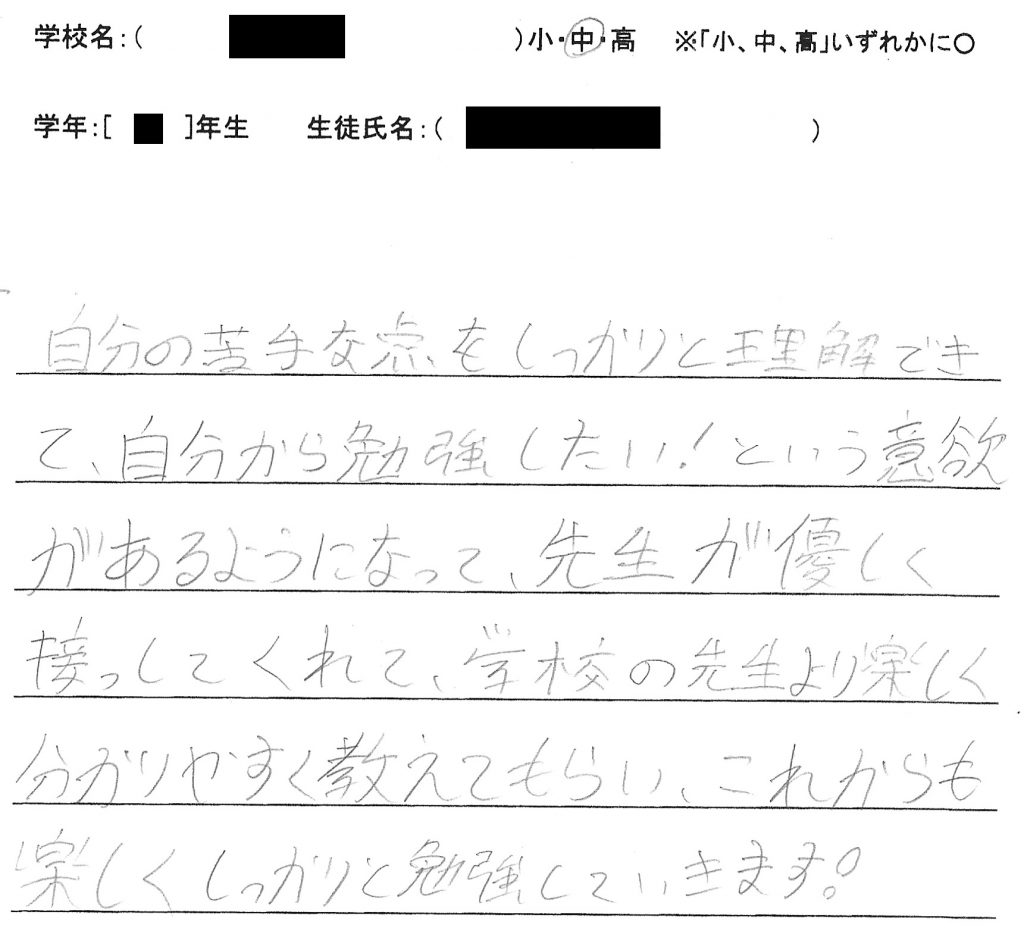 学校名:( )小・中・高 ※「小、中、高」いずれかに○
学年:[ ]年生 生徒氏名:( )
自分の苦手な点をしっかりと理解でき
て、自分から勉強したい!という意欲
があるようになって、先生が優しく
接っしてくれて、学校の先生より楽しく
分かりやすく教えてもらい、これからも
楽しくしっかりと勉強していきます。